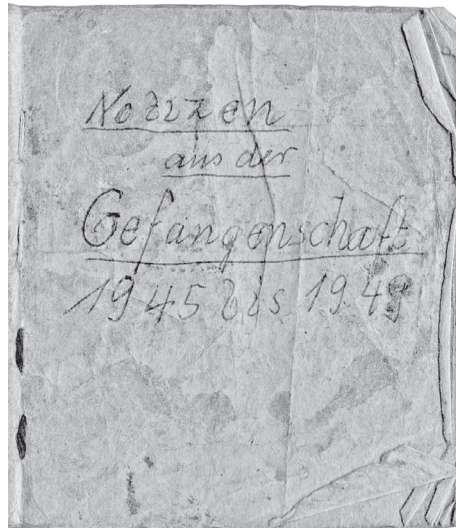 Notizen
aus der
Gefangenschaft
1945 bis 1949